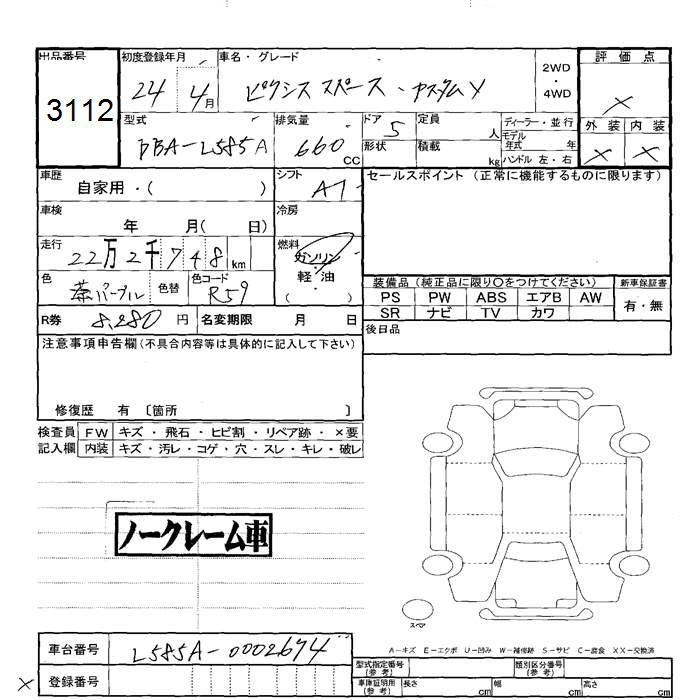 出品番号 初度登録年月 車名・グレード 2WD・4WD 評価点
3112 24 4月 ピクシス スペース・カスタムX X
型式 排気量 ドア 定員 人 ディーラー・並行 外装 内装
DBA-L585A 660 CC 5 モデル年式 年 X X
形状 積載 kg ハンドル 左・右
車歴 自家用・( ) シフト AT セールスポイント (正常に機能するものに限ります)
車検 年 月( 日) 冷房
走行 22万2千748km 燃料 ガソリン 軽・油 ( )
色 茶パープル 色替 色コード R59
装備品 (純正品に限り〇をつけてください) 新車保証書
PS PW ABS エアB AW 有・無
SR ナビ TV カワ
R券 8,280円 名変期限 月 日 後日品
注意事項申告欄(不具合内容等は具体的に記入して下さい)
修復歴 有 [箇所 ]
検査員 FW キズ・飛石・ヒビ割・リペア跡・×要
記入欄 内装 キズ・汚レ・コゲ・穴・スレ・キレ・破レ
ノークレーム車
スペア
A-キズ E-エクボ U-凹み W-補修跡 S-サビ C-腐食 XX-交換済
車台番号 L585A-0002674 型式指定番号(参考) 類別区分番号(参考)
X 登録番号 車庫証明用(参考) 長さ cm 幅 cm 高さ cm